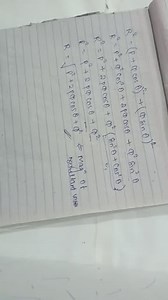 R² = (P + Q cos θ)² + (Q sin θ)²
R² = P² + Q² cos² θ + 2PQ cos θ + Q² sin² θ
R² = P² + 2PQ cos θ + Q² (sin² θ + cos² θ)
R² = P² + 2PQ cos θ + Q²
R = √P² + 2PQ cos θ + Q² → mag of resultant